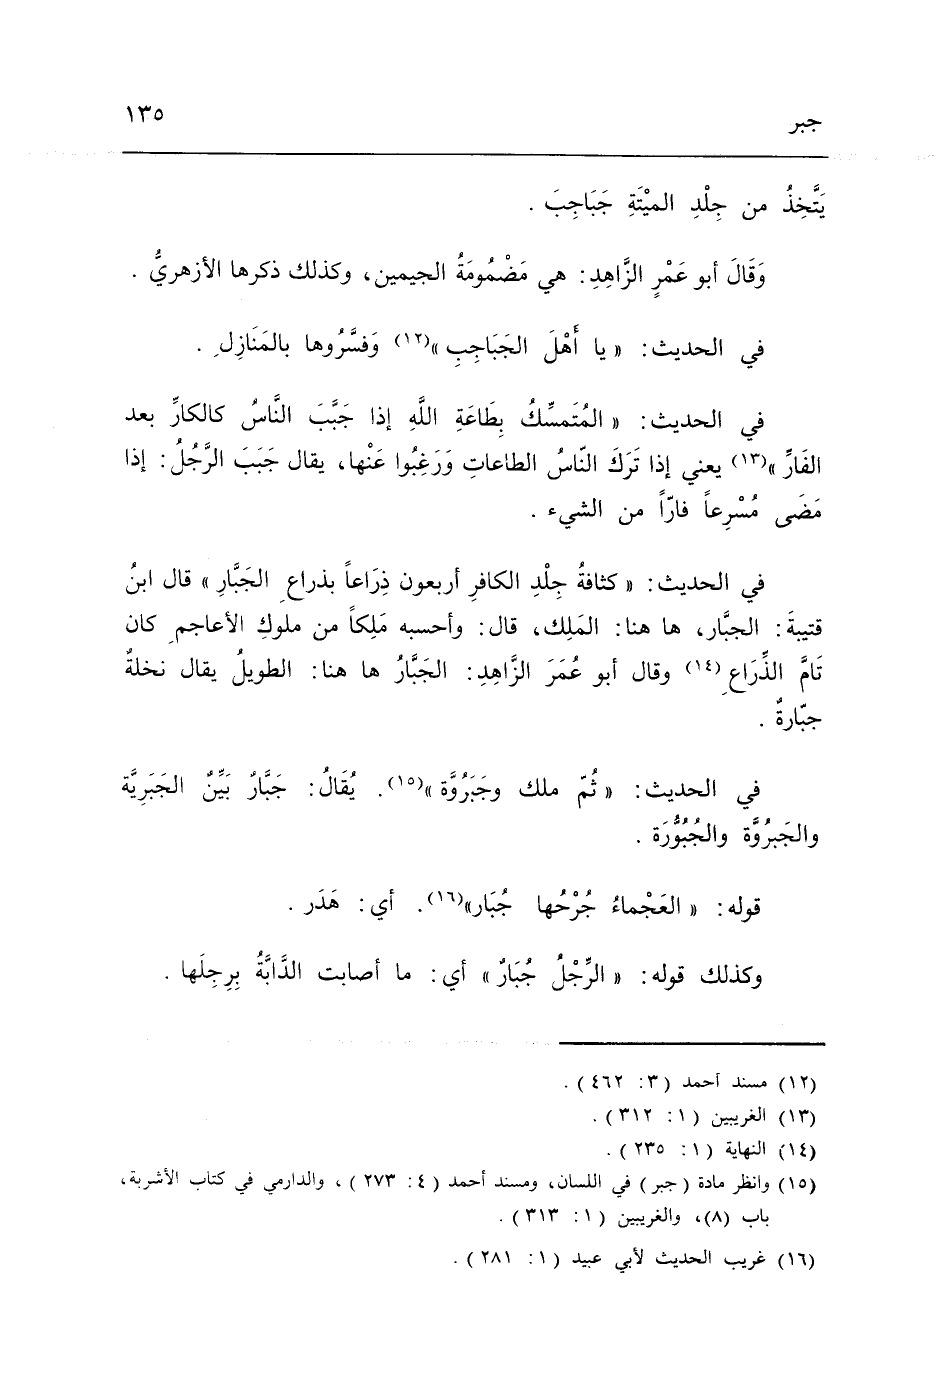 جبر
١٣٥
يَتَّخِذُ من جِلْدِ الميْتَةِ جَبَاجِبَ .
وَقَالَ أبو عَمْرٍ الزَّاهِدِ: هي مَضْمُومَةُ الجيمين، وكذلك ذكرها الأزهريُّ .
في الحديث: « يا أَهْلَ الجَبَاجِبِ »(١٢) وَفسَّرُوها بالمَنَازِلِ .
في الحديث: « المُتَمسِّكُ بِطَاعَةِ اللَّهِ إذا جَبَّبَ النَّاسُ كالكارِّ بعد
الفَارِّ »(١٣) يعني إذا تَرَكَ النّاسُ الطاعاتِ وَرَغِبُوا عَنْها، يقال جَبَبَ الرَّجُلُ: إذا
مَضَى مُسْرِعاً فارّاً من الشيء .
في الحديث: « كثافةُ جِلْدِ الكافرِ أربعون ذِرَاعاً بذراعِ الجَبَّارِ » قال ابنُ
قتيبةَ: الجبَّار، ها هنا: المَلِك، قال: وأحسبه مَلِكاً من ملوكِ الأعاجمِ كان
تَامَّ الذِّرَاعِ(١٤) وقال أبو عُمَرَ الزَّاهِدِ: الجَبَّارُ ها هنا: الطويلُ يقال نخلةٌ
جبّارةٌ .
في الحديث: « ثُمّ ملك وجَبَرُوَّة »(١٥). يُقَالُ: جَبَّارٌ بَيِّنٌ الجَبَرِيَّة
والجَبرُوَّة والجُبُوُّرَة .
قوله: « العَجْماءُ جُرْحُها جُبَار»(١٦). أي: هَدَر .
وكذلك قوله: « الرِّجْلُ جُبَارٌ » أي: ما أصابت الدَّابَّةُ بِرِجِلَها .
(١٢) مسند أحمد (٣: ٤٦٢) .
(١٣) الغريبين (١: ٣١٢) .
(١٤) النهاية (١: ٢٣٥) .
(١٥) وانظر مادة (جبر) في اللسان، ومسند أحمد (٤: ٢٧٣) ، والدارمي في كتاب الأشربة،
باب (٨)، والغريبين (١: ٣١٣) .
(١٦) غريب الحديث لأبي عبيد (١: ٢٨١) .